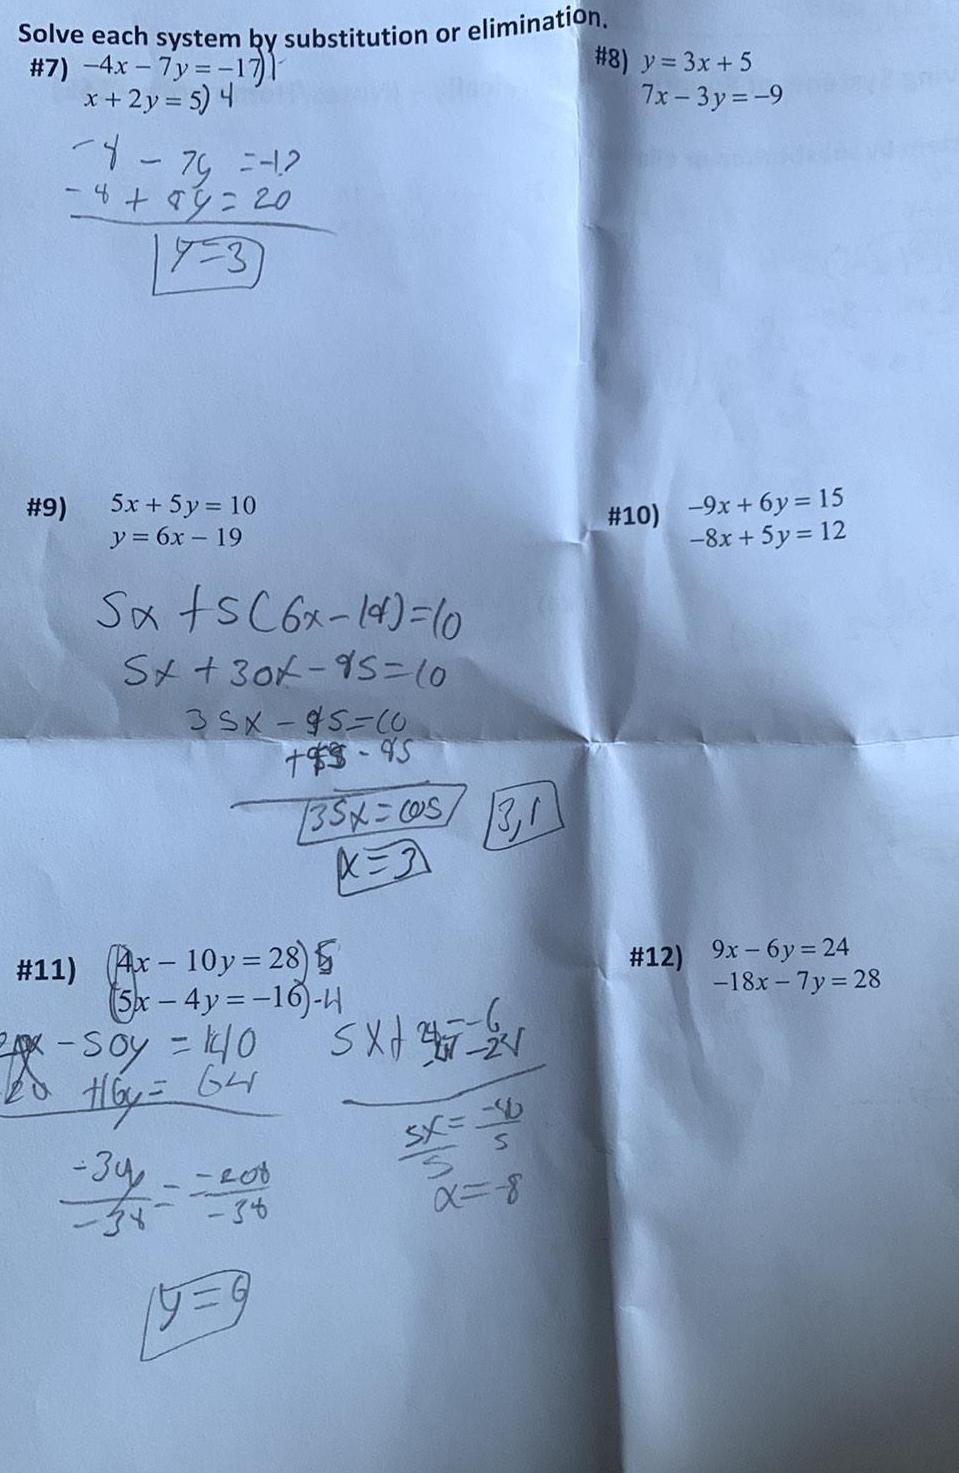 Solve each system by substitution or elimination.
#7) −4x − 7y = −17) 1
x + 2y = 5) 4
−4 − 7y = −17
− 4 + 8y = 20
y = 3
#8) y = 3x + 5
7x − 3y = −9
#9) 5x + 5y = 10
y = 6x − 19
5x + 5(6x − 19) = 10
5x + 30x − 95 = 10
35x − 95 = 10
+95 - 95
35x = 105
3,1
x = 3
#10) −9x + 6y = 15
−8x + 5y = 12
#11) (4x − 10y = 28) 5
(5x − 4y = −16) -4
− 50y = 140
20 +16y = 64
−34 = −208
−34 −38
y = 6
5x + = −6
−24
5x = −40
5 5
x = −8
#12) 9x − 6y = 24
−18x − 7y = 28